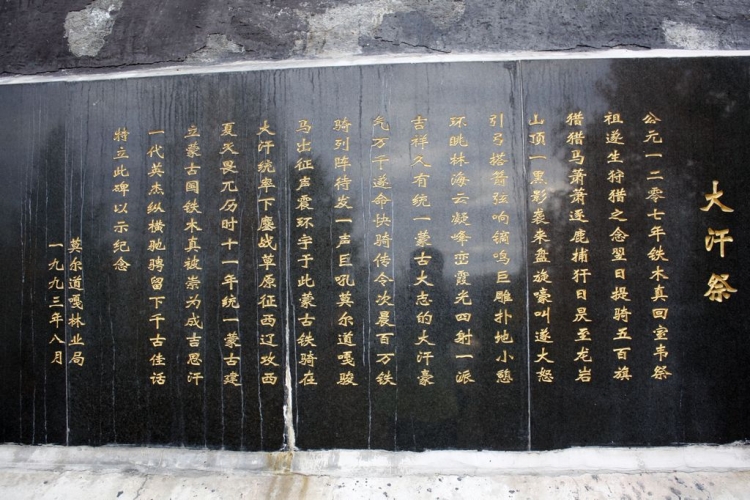 大汗祭
公元一二零七年铁木真回室韦祭
祖遂生狩猎之念翌日提骑五百旗
猎猎马萧萧逐鹿捕犴日昃至龙岩
山顶一黑影袭来盘旋豪叫遂大怒
引弓搭箭弦响镝鸣巨雕扑地小憩
环眺林海云凝峰峦霞光四射一派
吉祥久有统一蒙古大志的大汗豪
气万千遂命快骑传令次晨百万铁
骑列阵待发一声巨吼莫尔道嘎骏
马出征声震环宇于此蒙古铁骑在
大汗统率下鏖战草原征西辽攻西
夏天畏兀历时十一年统一蒙古建
立蒙古国铁木真被崇为成吉思汗
一代英杰纵横驰骋留下千古佳话
特立此碑以示纪念
莫尔道嘎林业局
一九九三年八月